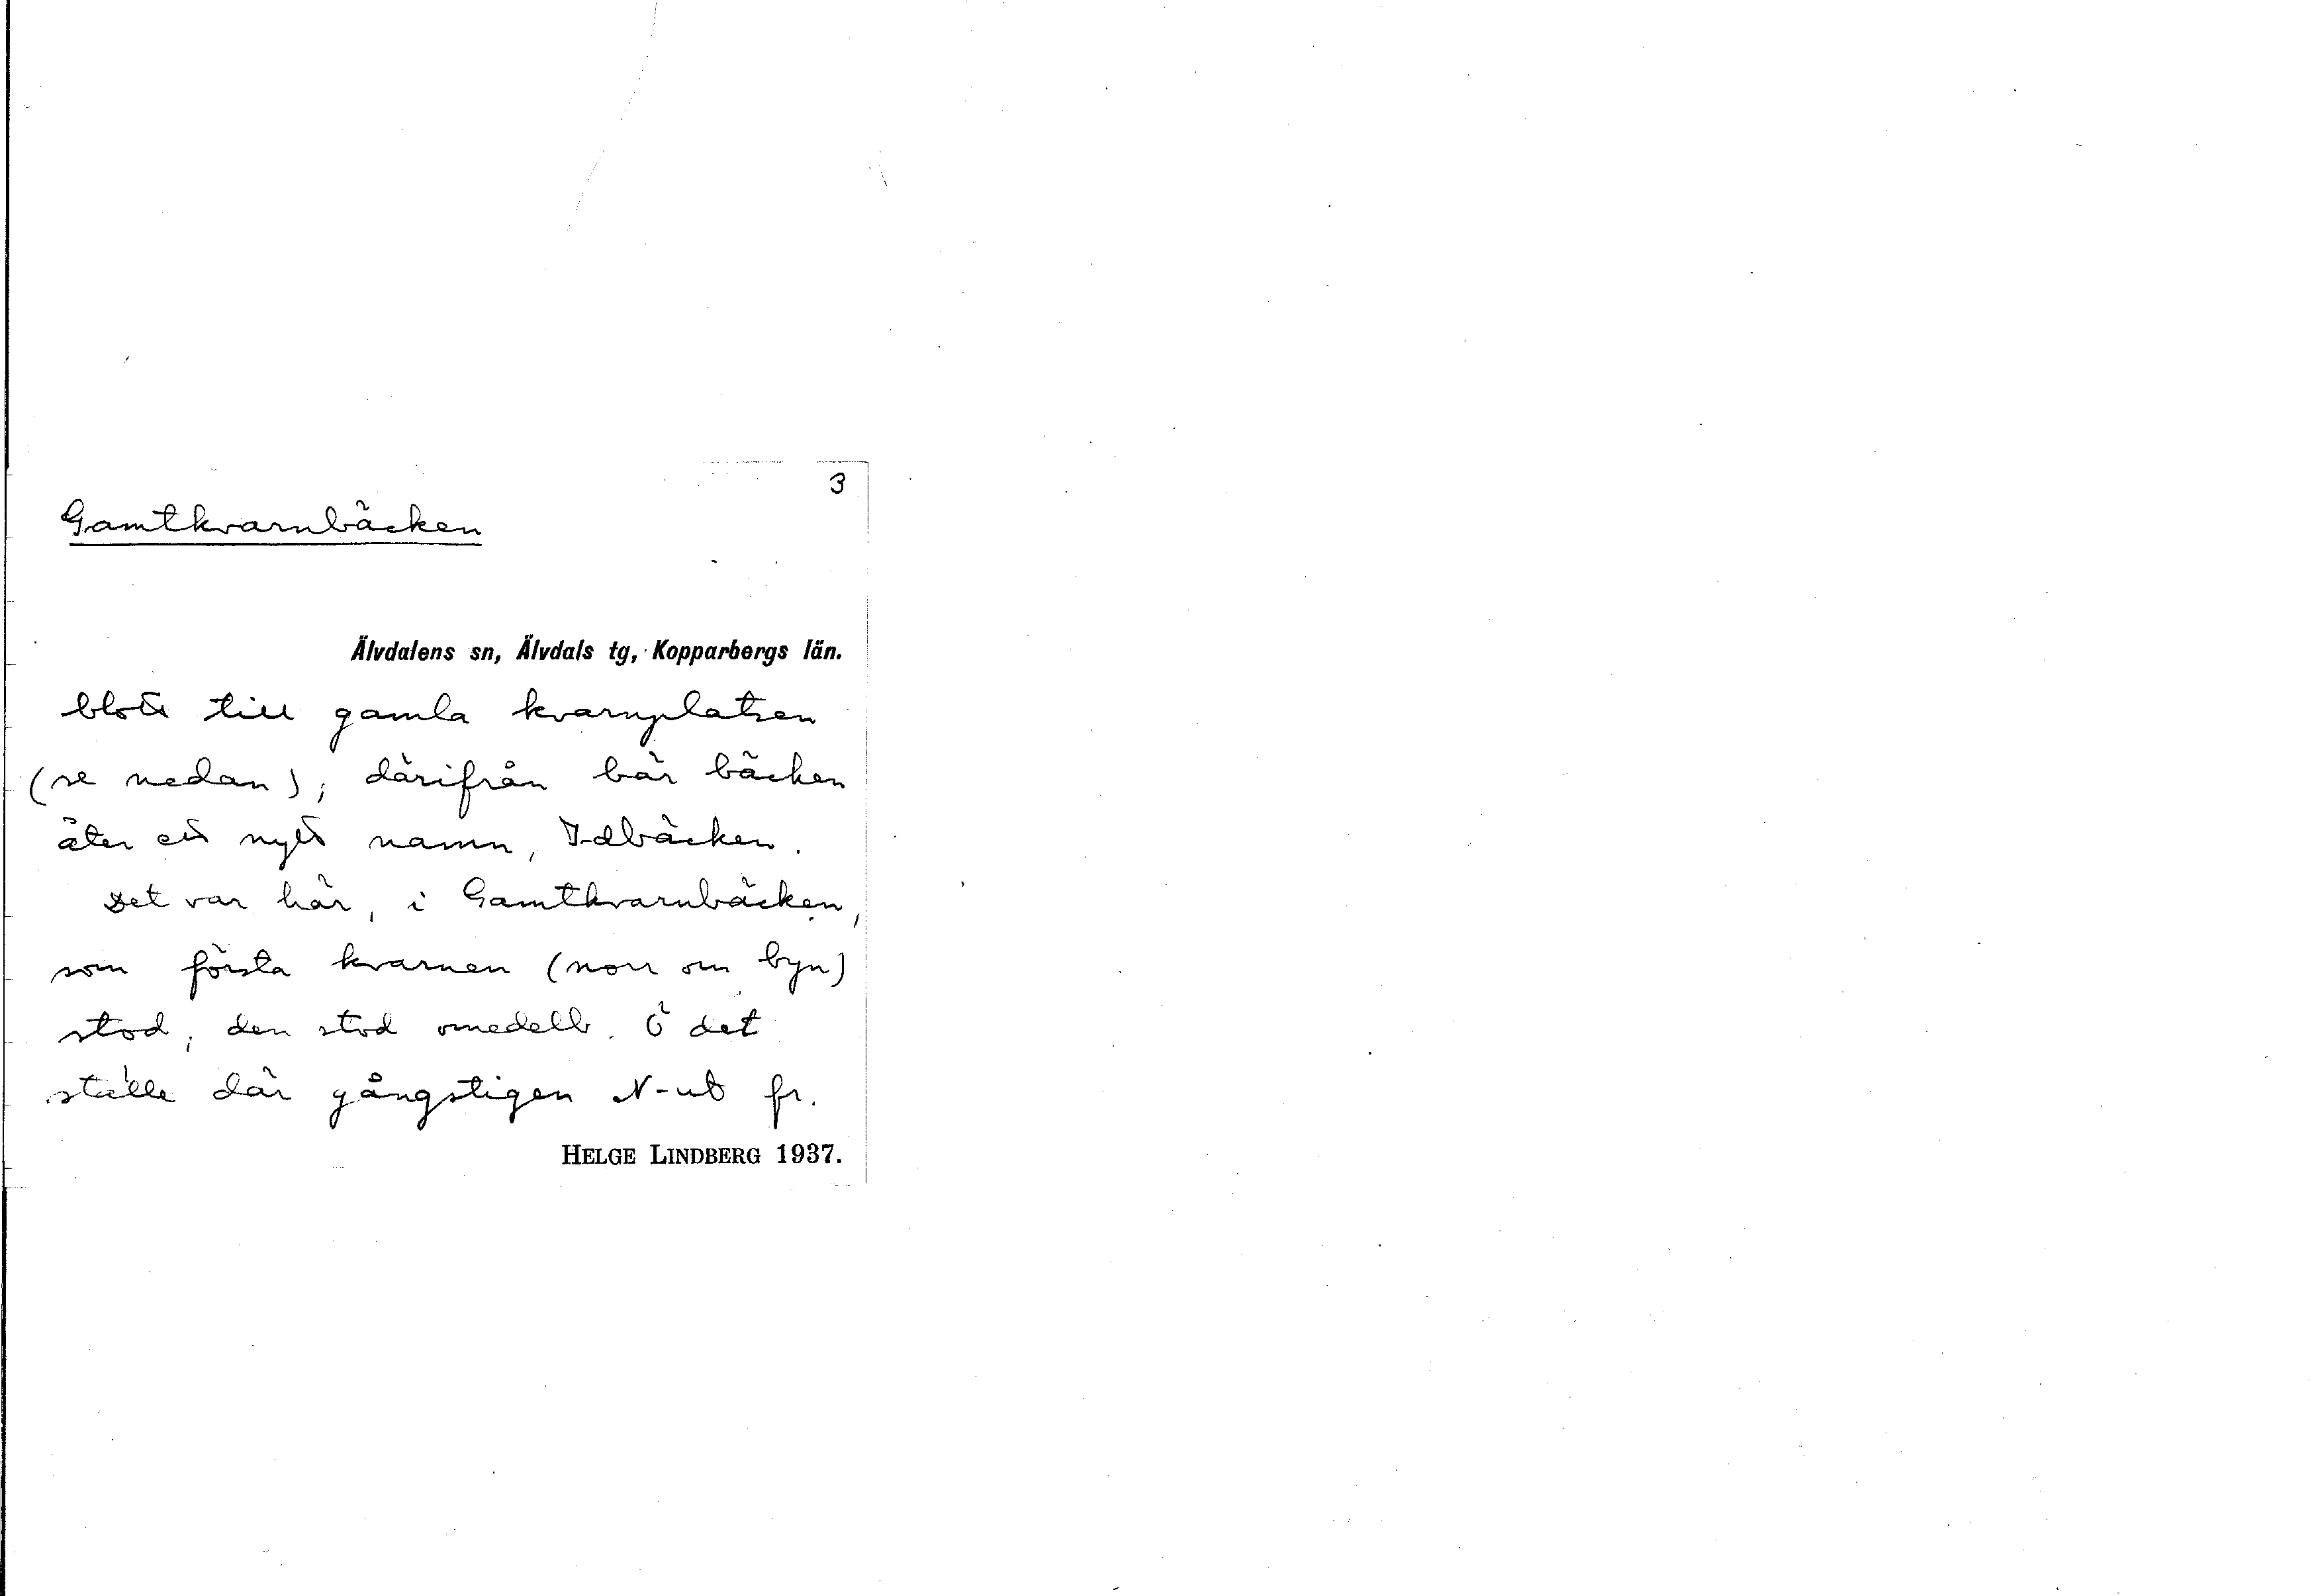 3
Gamtkvarnbäcken
Älvdalens sn, Älvdals tg, Kopparbergs län.
blott till gamla kvarnplatsen
(se nedan); därifrån bär bäcken
åter ett nytt namn, Idbäcken.
Det var här, i Gamtkvarnbäcken,
som första kvarnen (norr om byn)
stod; den stod omedelb. Ö det
ställe där gångstigen N-ut fr.
HELGE LINDBERG 1937.